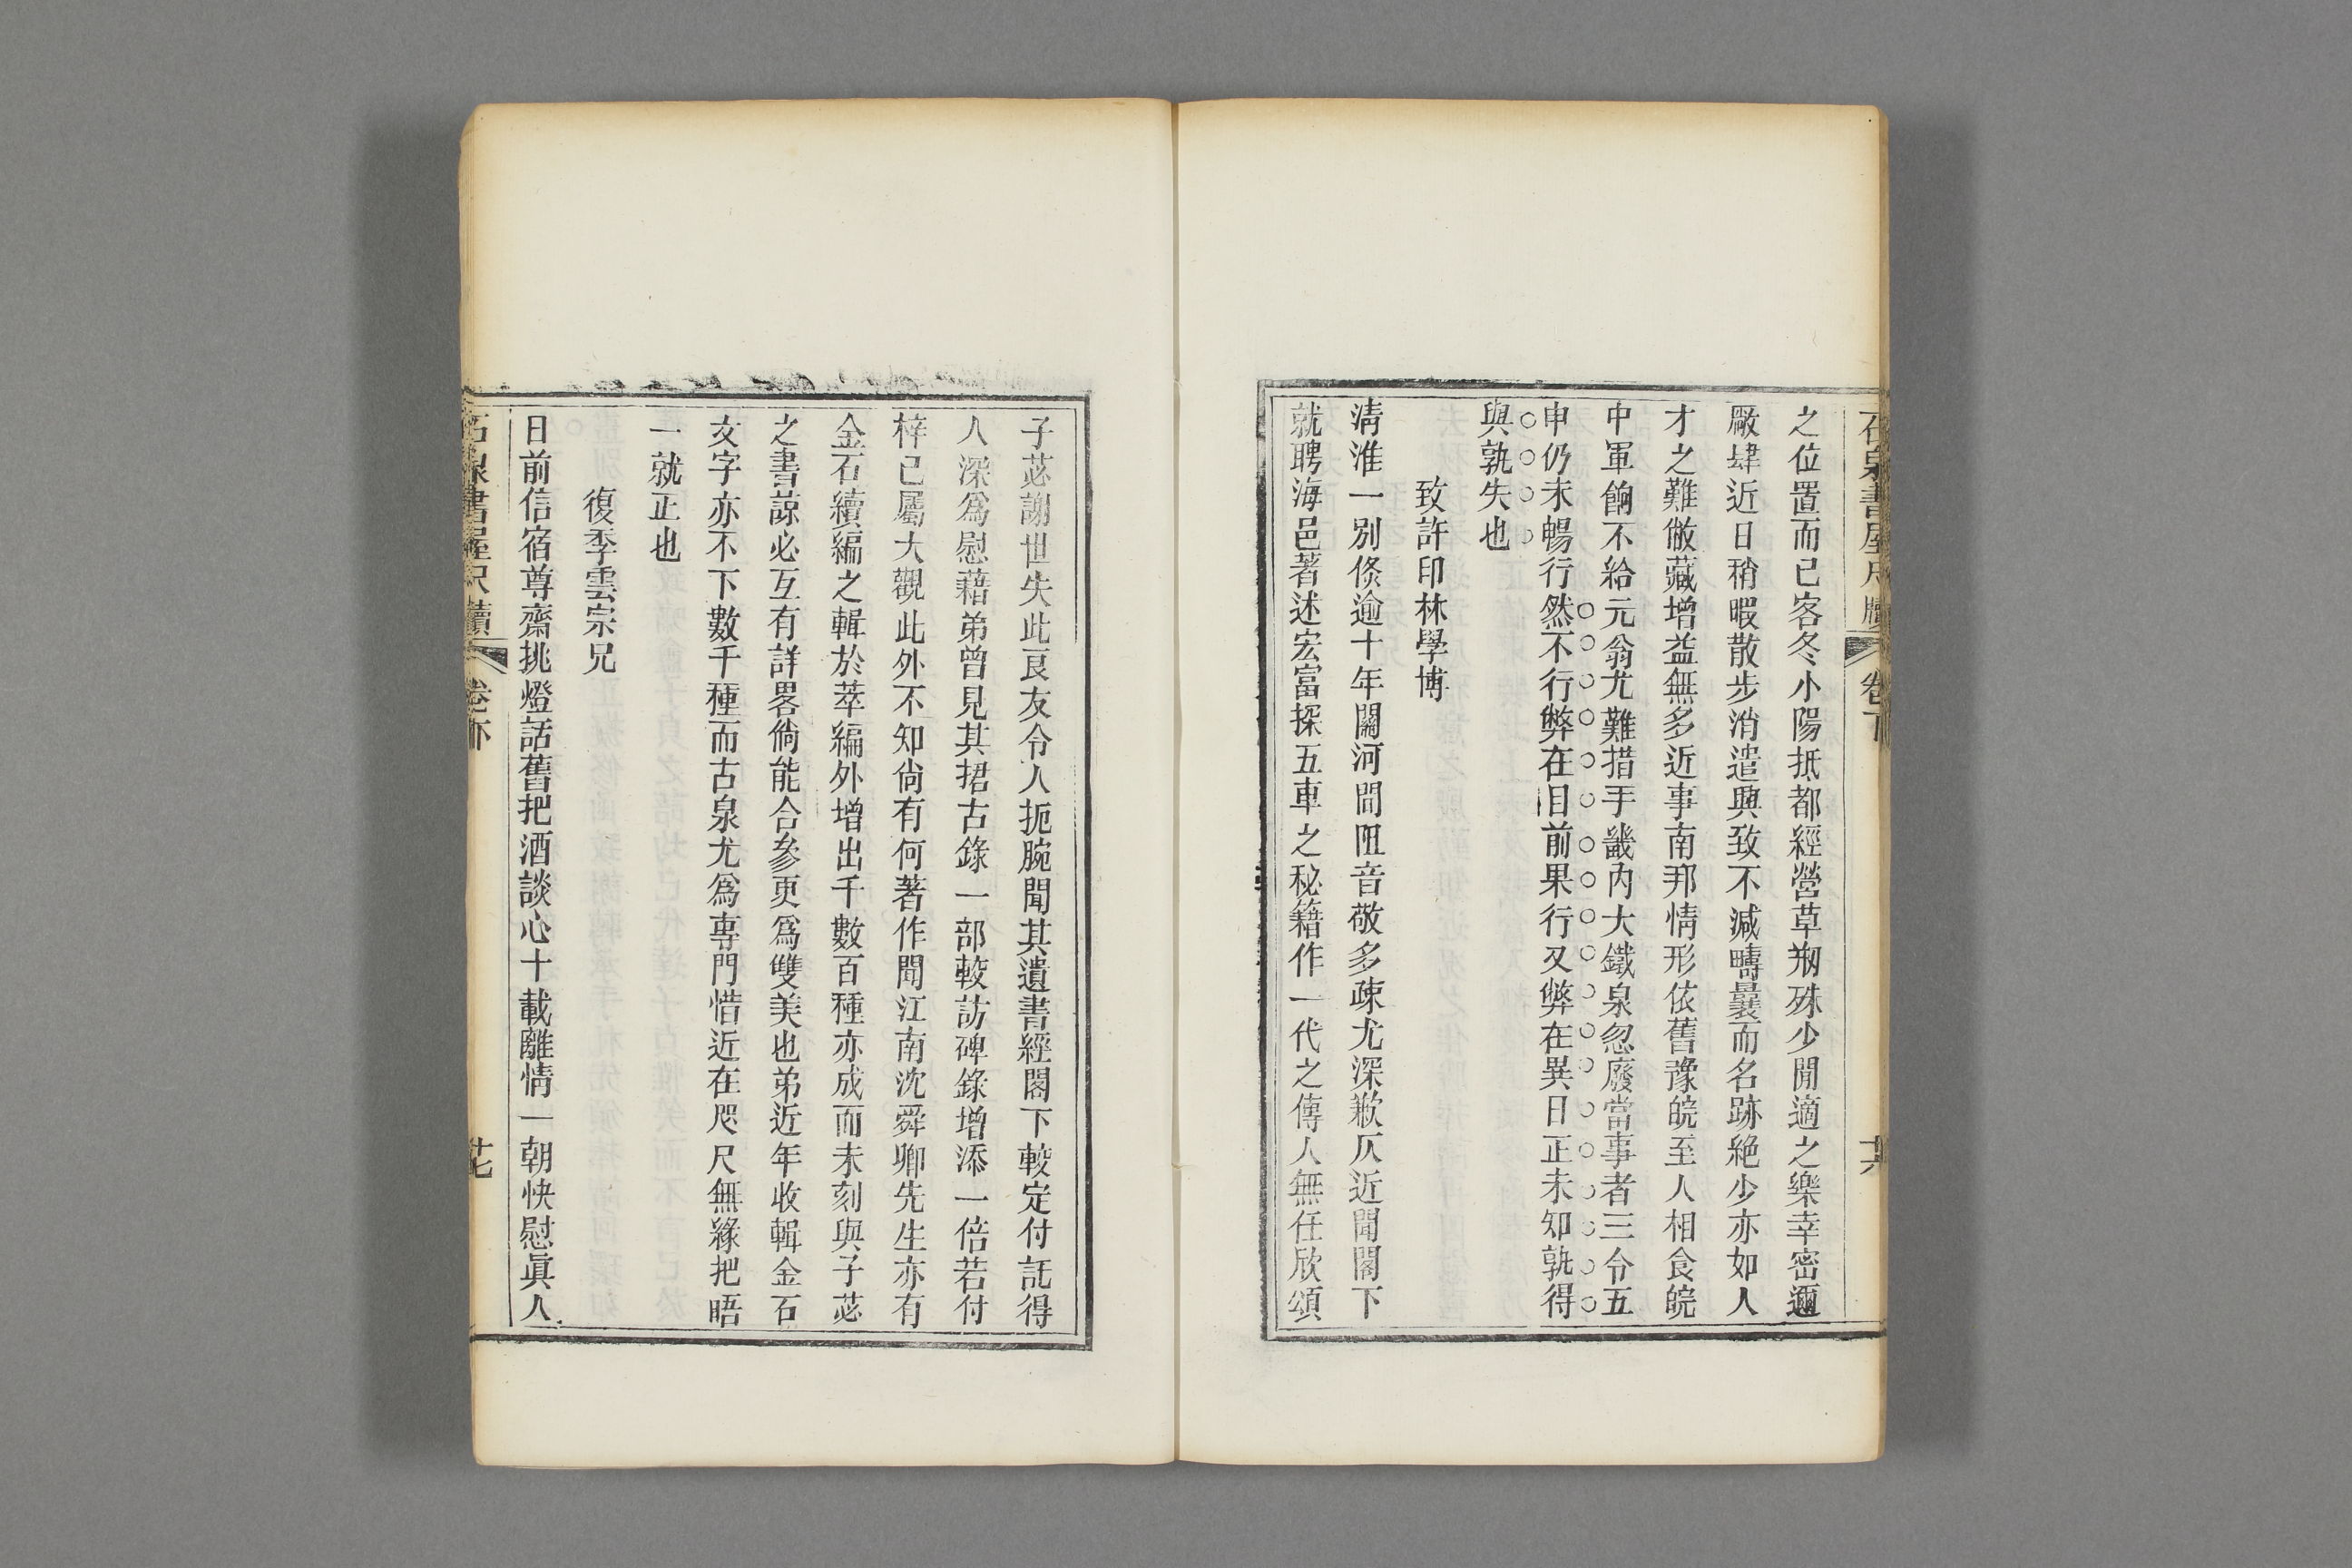 石泉書屋尺牘 卷下 十六
之位置而已客冬小陽抵都經營草刱殊少閒適之樂幸密邇
廠肆近日稍暇散步消遣興致不減疇曩而名跡絶少亦如人
才之難倣藏增益無多近事南邦情形依舊豫皖至人相食皖
中軍餉不給元翁尤難措手畿内大鐵泉忽廢當事者三令五
申仍未暢行然不行弊在目前果行又弊在異日正未知孰得
與孰失也
致許印林學博
淸淮一別倐逾十年關河間阻音敬多疎尤深歉仄近聞閣下
就聘海邑著述宏富探五車之秘籍作一代之傳人無任欣頌
子苾謝世失此良友令人扼腕聞其遺書經閣下較定付託得
人深爲慰藉弟曾見其捃古錄一部較訪碑錄增添一倍若付
梓已屬大觀此外不知尙有何著作聞江南沈舜卿先生亦有
金石續編之輯於萃編外增出千數百種亦成而未刻與子苾
之書諒必互有詳畧倘能合參更爲雙美也弟近年收輯金石
文字亦不下數千種而古泉尤爲專門惜近在咫尺無緣把晤
一就正也
復季雲宗兄
日前信宿尊齋挑燈話舊把酒談心十載離情一朝快慰眞人
石泉書屋尺牘 卷下 十七